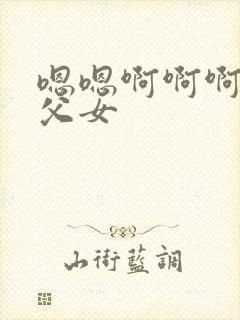 嗯嗯啊啊啊
父女
山街藍調